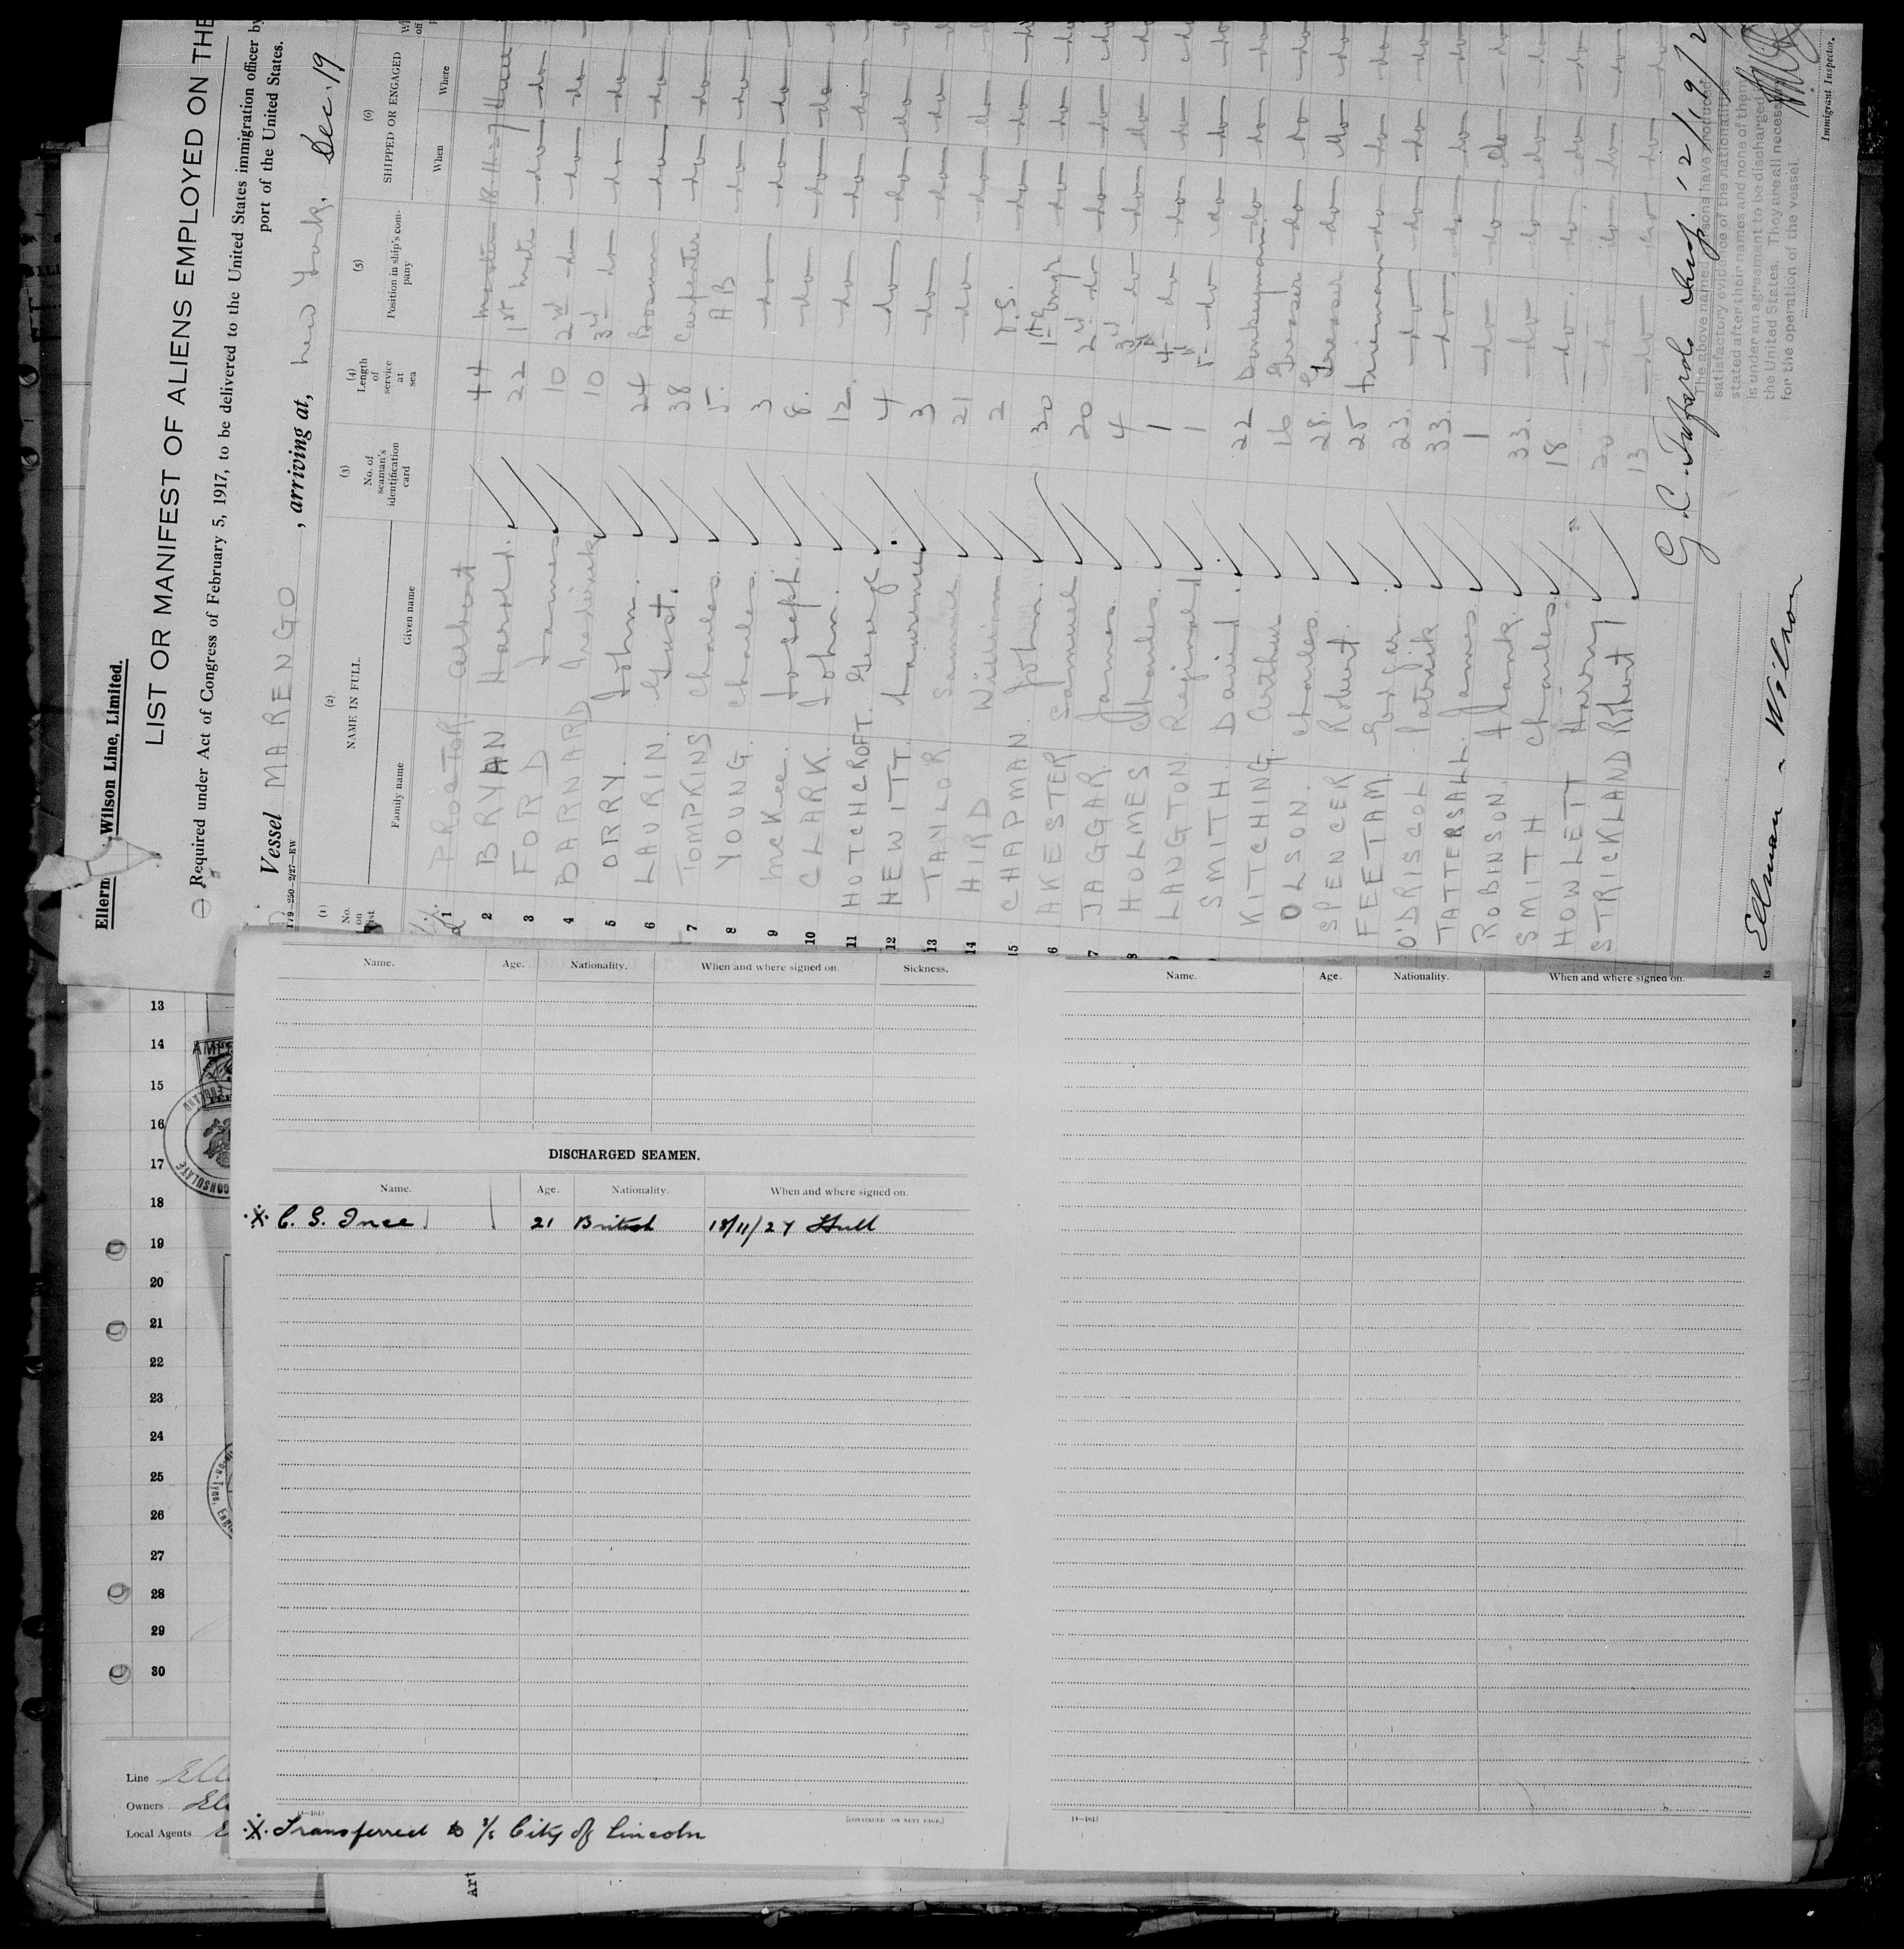 Ellerm Wilson Line, Limited.
LIST OR MANIFEST OF ALIENS EMPLOYED ON THE
Required under Act of Congress of February 5, 1917, to be delivered to the United States immigration officer by
port of the United States.
Vessel MARENGO , arriving at, New York, Dec. 19
179—250—2/27—EW
(1) (2) (3) (4) (5) (6)
No. on list NAME IN FULL. No. of seaman's identification card Length of service at sea Position in ship's company SHIPPED OR ENGAGED
Family name Given name When Where
1 PROCTOR Albert 44 Master 18-11-27 Hull
2 BRYAN Harold. 22 1st Mate do do
3 FORD James 10 2nd do do do
4 BARNARD Frederick 10 3rd do do do
5 ORRY. John. 24 Bosun do do
6 LAURIN. Gust. 38 Carpenter do do
7 TOMPKINS Charles. 5. AB do do
8 YOUNG. Charles. 3 do do do
9 McKee. Joseph. 8. do do do
10 CLARK. John. 12. do do do
11 HOTCHCROFT. George 4 do do do
12 HEWITT. Laurence 3 do do do
13 TAYLOR Samuel 21 do do do
14 HIRD William 2 do do
15 CHAPMAN. John. 30 do do
6 AKESTER Samuel 20 2nd do do do
7 JAGGAR James. 4 3rd do do do
8 HOLMES Charles. 1 4th do do do
9 LANGTON. Reginald 1 5th do do do
SMITH David. 22 Donkeyman do do
KITCHING. Arthur 16 Greaser do do
OLSON. Charles. 28. Greaser do do
SPENCER Robert. 25 Fireman do do
FEETAM. 23. do do do
O'DRISCOL Patrick 33. do do do
TATTERSALL. James. 1 do do do
ROBINSON. Frank. 33. do do do
SMITH Charles. 18 do do do
HOWLETT Harry 20 do do do
STRICKLAND Robert 13 do do do
12/19/2
The above named persons have produced
satisfactory evidence of the nationality
stated after their names and none of them
is under an agreement to be discharged in
the United States. They are all necessary
for the operation of the vessel.
Immigrant Inspector.
Ellman - Wilson
Name. Age. Nationality. When and where signed on. Sickness.
Name. Age. Nationality. When and where signed on.
DISCHARGED SEAMEN.
Name. Age. Nationality. When and where signed on.
※ C. S. Ince 21 British 18/11/27 Hull
(4—161)
[CONTINUED ON NEXT PAGE.]
(4—161)
※ Transferred to S/S City of Lincoln
13
14
15
16
17
18
19
20
21
22
23
24
25
26
27
28
29
30
CONSULATE
ENGLAND
Line Elle
Owners Ell
Local Agents E
Art